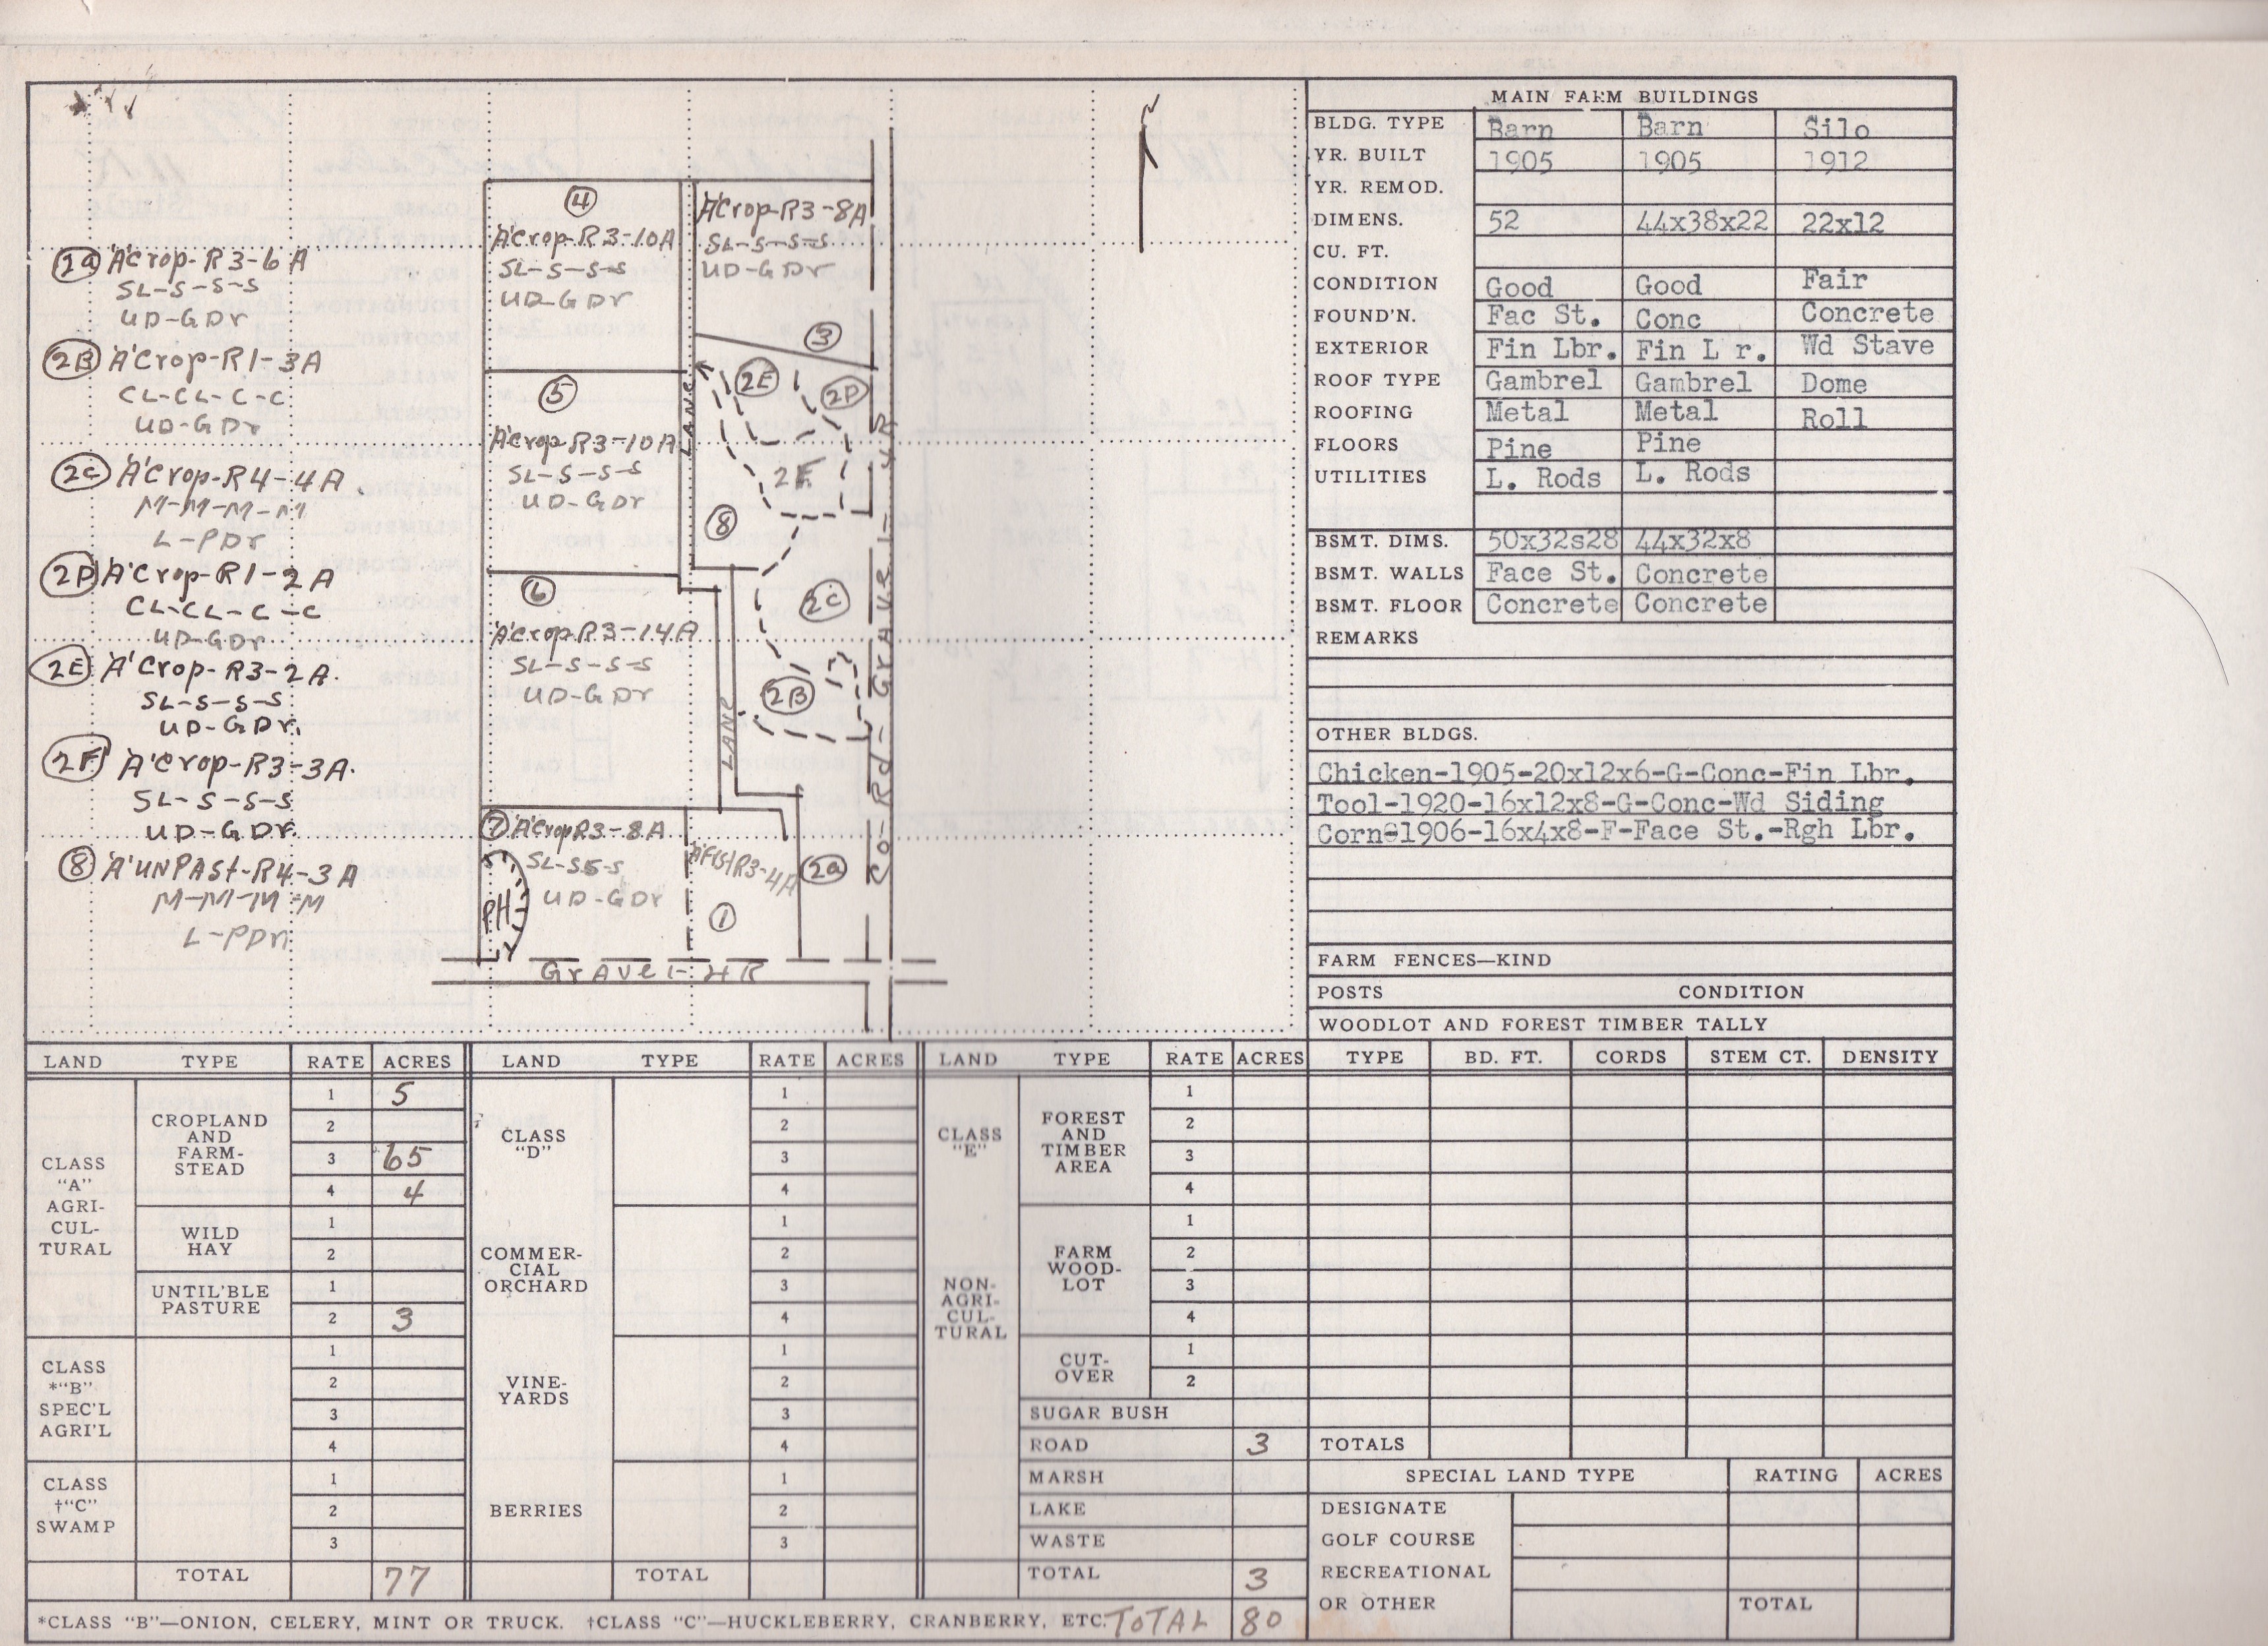 2a A'Crop-R3-6A
SL-S-S-S
UD-GDr
2B A'Crop-R1-3A
CL-CL-C-C
UD-GDr
2C A'Crop-R4-4A.
M-M-M-M
L-PDr
2D A'Crop-R1-2A
CL-CL-C-C
UD-GDr
2E A'Crop-R3-2A.
SL-S-S-S
UD-GDr.
2F A'Crop-R3-3A.
SL-S-S-S
UD-GDr.
8 A'UNPASt-R4-3A
M-M-M-M
L-PDr
4
A'Crop-R3-10A
SL-S-S-S
UD-GDr
A'Crop-R3-8A
SL-S-S-S
UD-GDr
3
5
A'Crop-R3-10A
SL-S-S-S
UD-GDr
LANE
2E
2D
2F
8
6
A'Crop-R3-14A
SL-S-S-S
UD-GDr
2C
2B
LANE
7 A'Crop R3-8A
SL-S-S-S
UD-GDr
PH
A'F(S)R3-4A
1
2a
Co-Rd-GrAvel-4R
GrAvel-4R
N
MAIN FARM BUILDINGS
BLDG. TYPE Barn Barn Silo
YR. BUILT 1905 1905 1912
YR. REMOD.
DIMENS. 52 44x38x22 22x12
CU. FT.
CONDITION Good Good Fair
FOUND'N. Fac St. Conc Concrete
EXTERIOR Fin Lbr. Fin L r. Wd Stave
ROOF TYPE Gambrel Gambrel Dome
ROOFING Metal Metal Roll
FLOORS Pine Pine
UTILITIES L. Rods L. Rods
BSMT. DIMS. 50x32s28 44x32x8
BSMT. WALLS Face St. Concrete
BSMT. FLOOR Concrete Concrete
REMARKS
OTHER BLDGS.
Chicken-1905-20x12x6-G-Conc-Fin Lbr.
Tool-1920-16x12x8-G-Conc-Wd Siding
Corn-1906-16x4x8-F-Face St.-Rgh Lbr.
FARM FENCES—KIND
POSTS CONDITION
WOODLOT AND FOREST TIMBER TALLY
TYPE BD. FT. CORDS STEM CT. DENSITY
TOTALS
SPECIAL LAND TYPE RATING ACRES
DESIGNATE
GOLF COURSE
RECREATIONAL
OR OTHER TOTAL
LAND TYPE RATE ACRES
CLASS
"A"
AGRI-
CUL-
TURAL
CROPLAND
AND
FARM-
STEAD
1 5
2
3 65
4 4
WILD
HAY
1
2
UNTIL'BLE
PASTURE
1
2 3
CLASS
*"B"
SPEC'L
AGRI'L
1
2
3
4
CLASS
†"C"
SWAMP
1
2
3
TOTAL 77
LAND TYPE RATE ACRES
CLASS
"D"
1
2
3
4
COMMER-
CIAL
ORCHARD
1
2
3
4
VINE-
YARDS
1
2
3
4
BERRIES
1
2
3
TOTAL
LAND TYPE RATE ACRES
CLASS
"E"
NON-
AGRI-
CUL-
TURAL
FOREST
AND
TIMBER
AREA
1
2
3
4
FARM
WOOD-
LOT
1
2
3
4
CUT-
OVER
1
2
SUGAR BUSH
ROAD 3
MARSH
LAKE
WASTE
TOTAL 3
*CLASS "B"—ONION, CELERY, MINT OR TRUCK. †CLASS "C"—HUCKLEBERRY, CRANBERRY, ETC. TOTAL 80